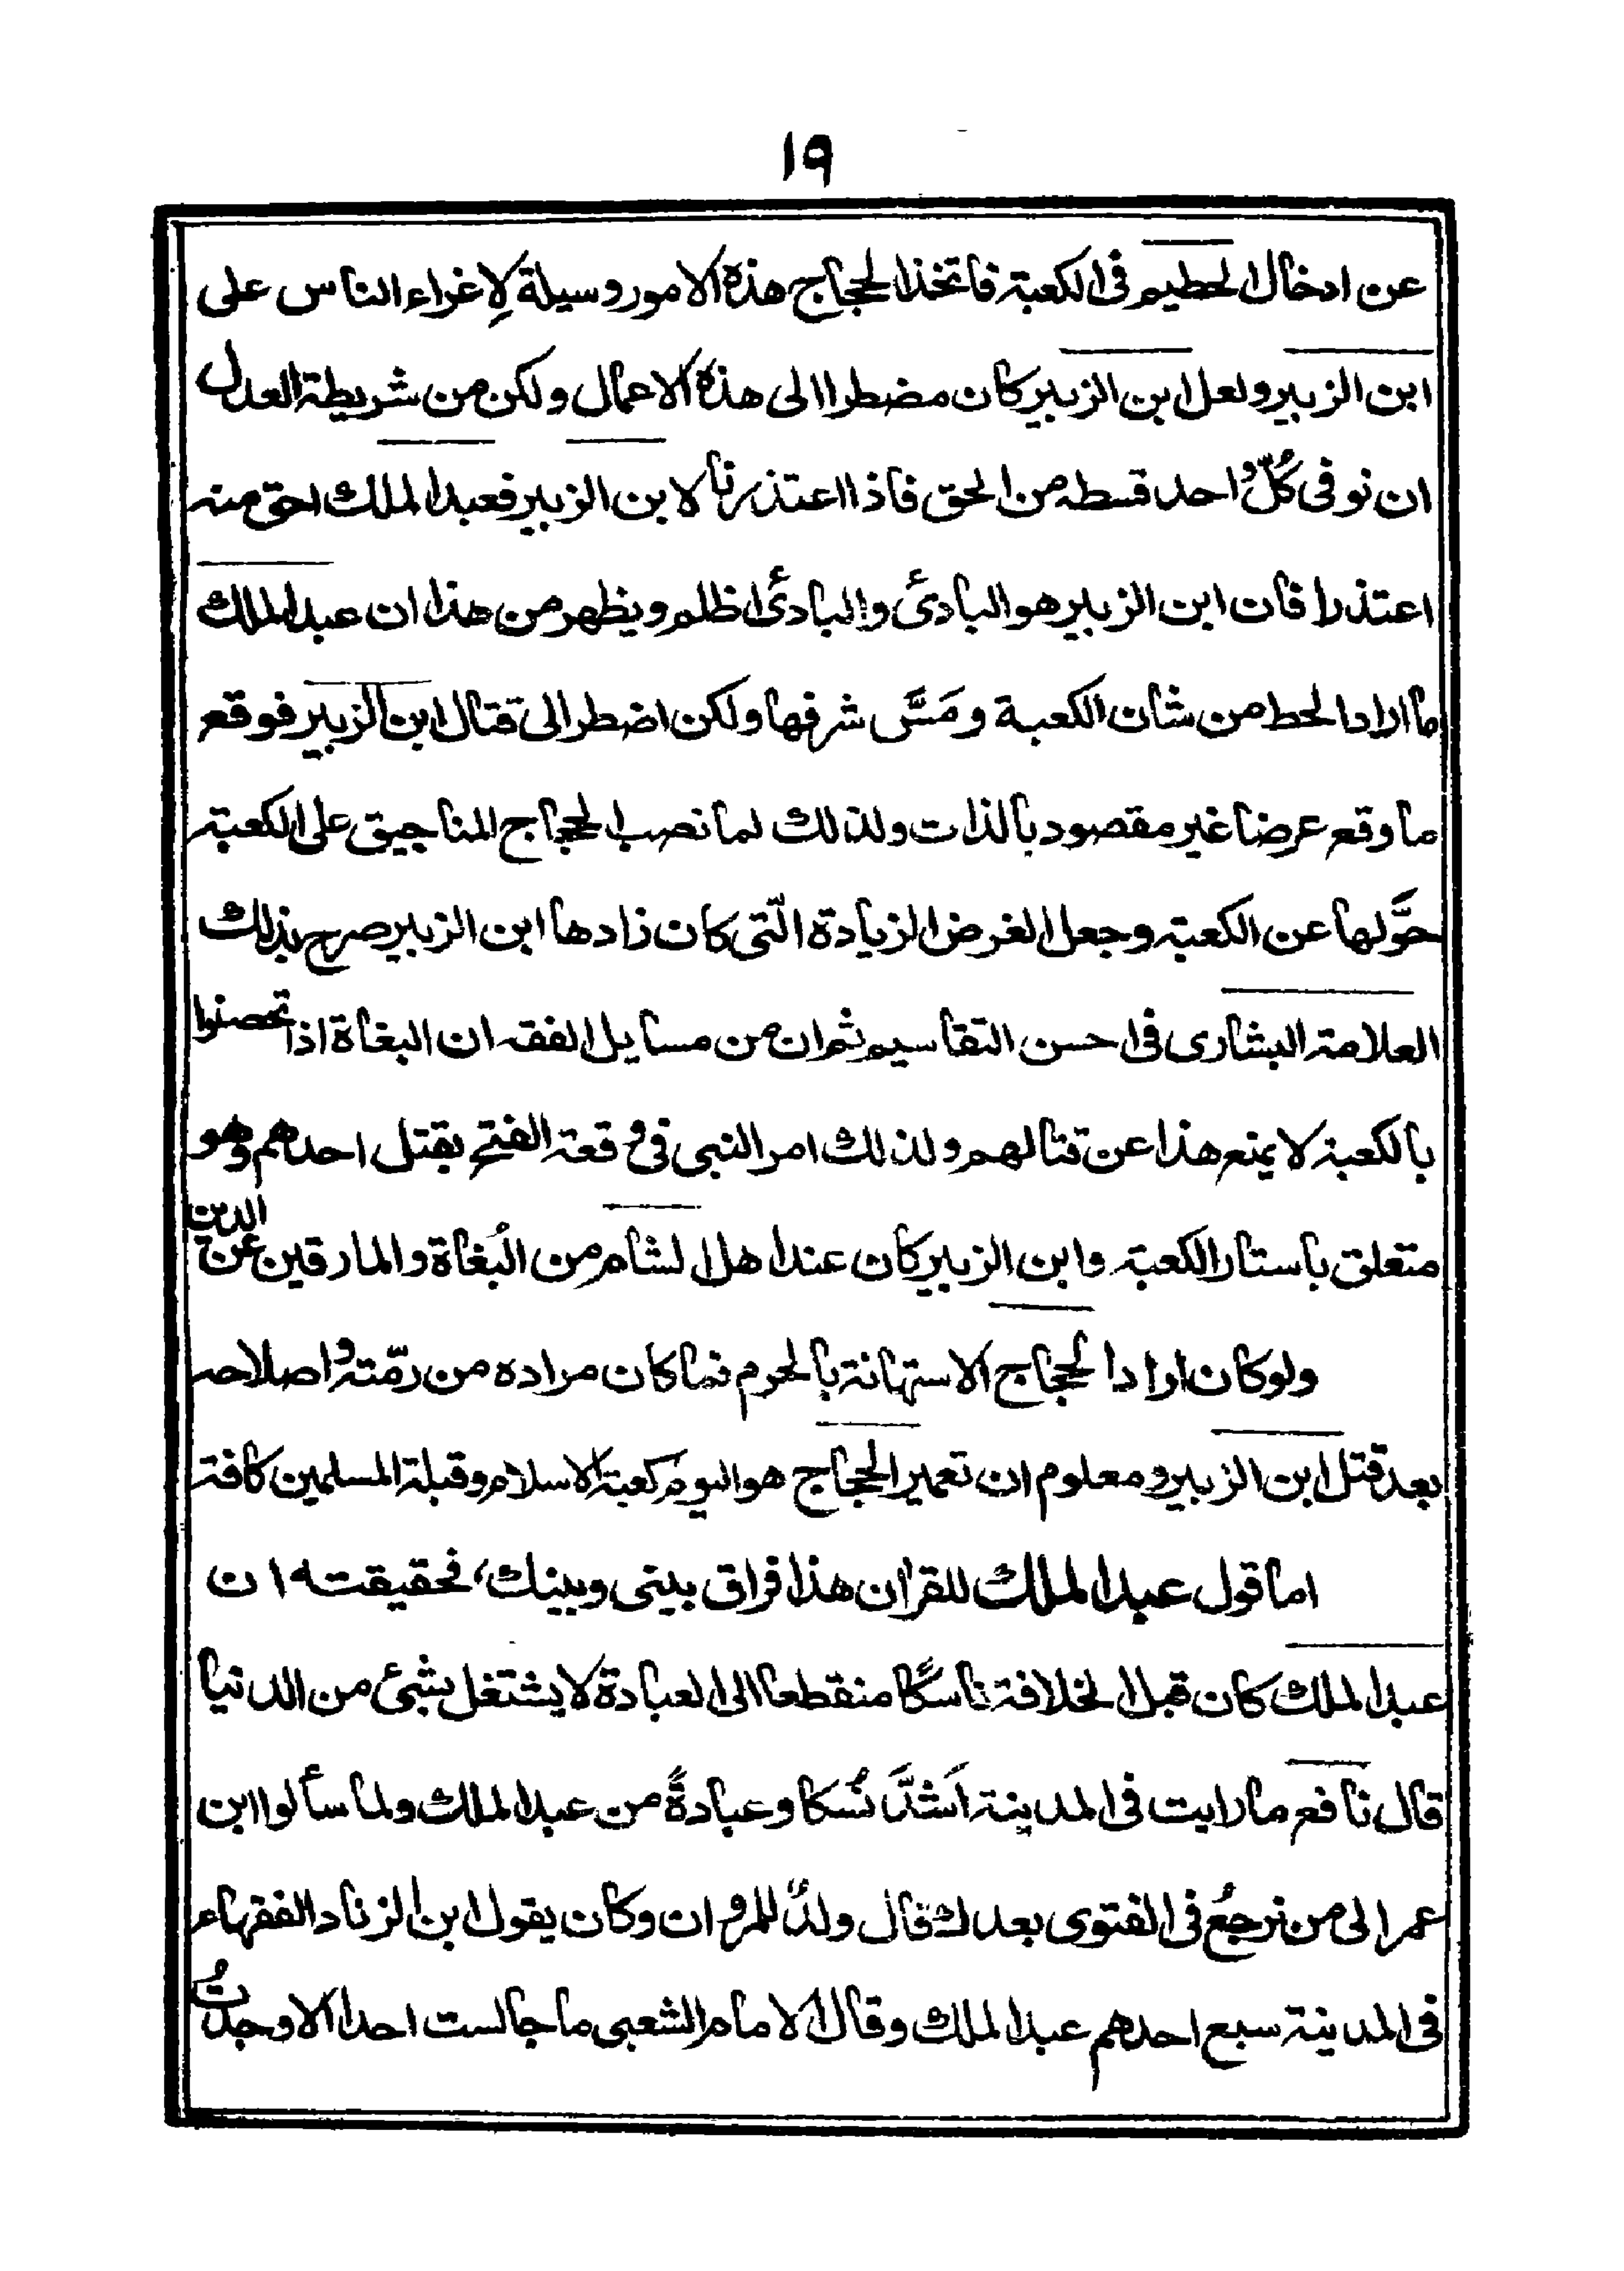 ١٩
عن ادخال الحطيم فى الكعبة فاتخذ الحجاج هذه الامور وسيلة لِاغراء الناس على
ابن الزبير ولعل ابن الزبير كان مضطرا الى هذه الاعمال ولكن من شريطة العدل
ان نوفى كُلّ واحد قسطه من الحق فاذا اعتذرنا لابن الزبير فعبد الملك احق منه
اعتذرا فان ابن الزبير هو البادئ والبادئ اظلم ويظهر من هذا ان عبد الملك
ما اراد الحط من شان الكعبة ومَسَّ شرفها ولكن اضطر الى قتال ابن الزبير فوقع
ما وقع عرضا غير مقصود بالذات ولذلك لما نصب الحجاج المناجيق على الكعبة
حوَّلها عن الكعبة وجعل الغرض الزيادة الّتى كان زادها ابن الزبير صرح بذلك
العلامة البشارى فى احسن التقاسيم ثم ان من مسايل الفقه ان البغاة اذا تحصنوا
بالكعبة لا يمنع هذا عن قتالهم ولذلك امر النبى فى وقعة الفتح بقتل احدهم وهو
متعلق باستار الكعبة وابن الزبير كان عند اهل الشام من البُغاة والمارقين عن الدين
ولو كان اراد الحجاج الاستهانة بالحرم فما كان مراده من رمّته واصلاحه
بعد قتل ابن الزبير ومعلوم ان تعمير الحجاج هو اليوم كعبة الاسلام وقبلة المسلمين كافة
اما قول عبد الملك للقران هذا فراق بينى وبينك، فحقيقته ان
عبد الملك كان قبل الخلافة ناسكًا منقطعا الى العبادة لا يشتغل بشئ من الدنيا
قال نافع ما رايت فى المدينة اَشدَّ نُسكا وعبادةً من عبد الملك ولما سألوا ابن
عمر الى من نرجعُ فى الفتوى بعدك قال ولدٌ للمروان وكان يقول ابن الزناد الفقهاء
فى المدينة سبع احدهم عبد الملك وقال الامام الشعبى ما جالست احدا الا وجدتُ